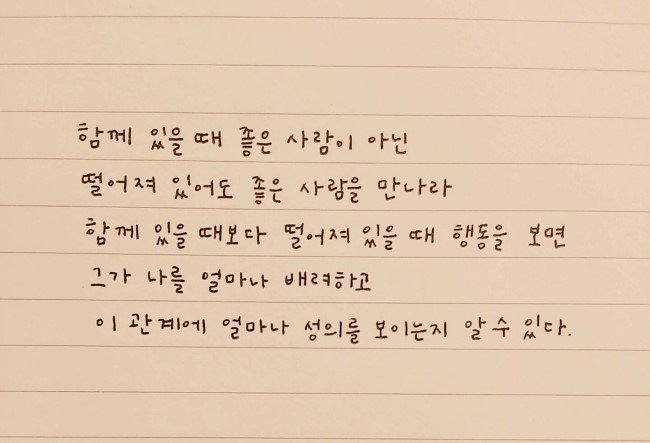 함께 있을 때 좋은 사람이 아닌
떨어져 있어도 좋은 사람을 만나라
함께 있을 때보다 떨어져 있을 때 행동을 보면
그가 나를 얼마나 배려하고
이 관계에 얼마나 성의를 보이는지 알 수 있다.